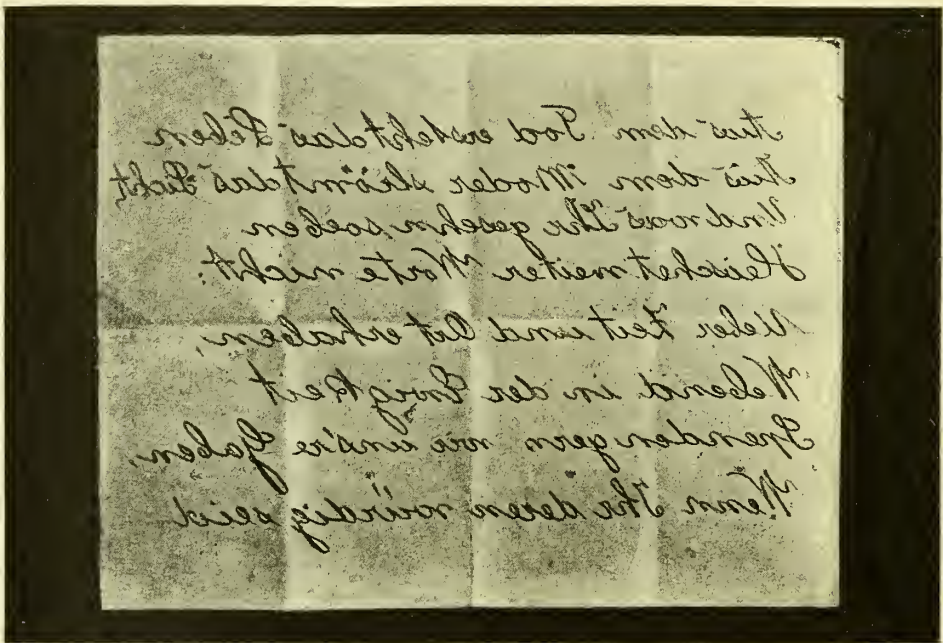 Aus dem Tod ersteht das Leben
Aus dem Moder strömt das Licht
Und was Ihr gesehn soeben
Heischet weiter Worte nicht:
Ueber Zeit und Ort erhaben,
Webend in der Ewigkeit
Spenden gern wir uns're Gaben,
Wenn Ihr deren würdig seid